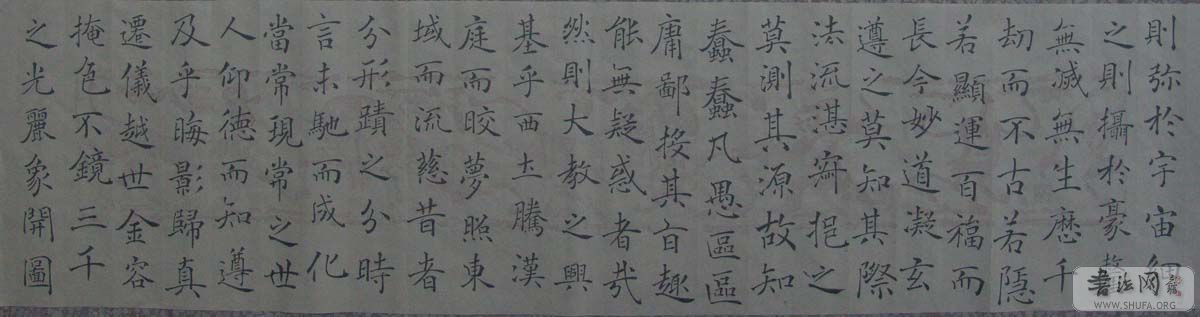 則弥於宇宙細
之則攝於豪釐
無滅無生歷千
劫而不古若隱
若顯運百福而
長今妙道凝玄
遵之莫知其際
法流湛寂挹之
莫測其源故知
蠢蠢凡愚區區
庸鄙投其旨趣
能無疑惑者哉
然則大教之興
基乎西土騰漢
庭而皎夢照東
域而流慈昔者
分形蹟之分時
言未馳而成化
當常現常之世
人仰德而知遵
及乎晦影歸真
遷儀越世金容
掩色不鏡三千
之光麗象開圖
书法网
WWW.SHUFA.ORG